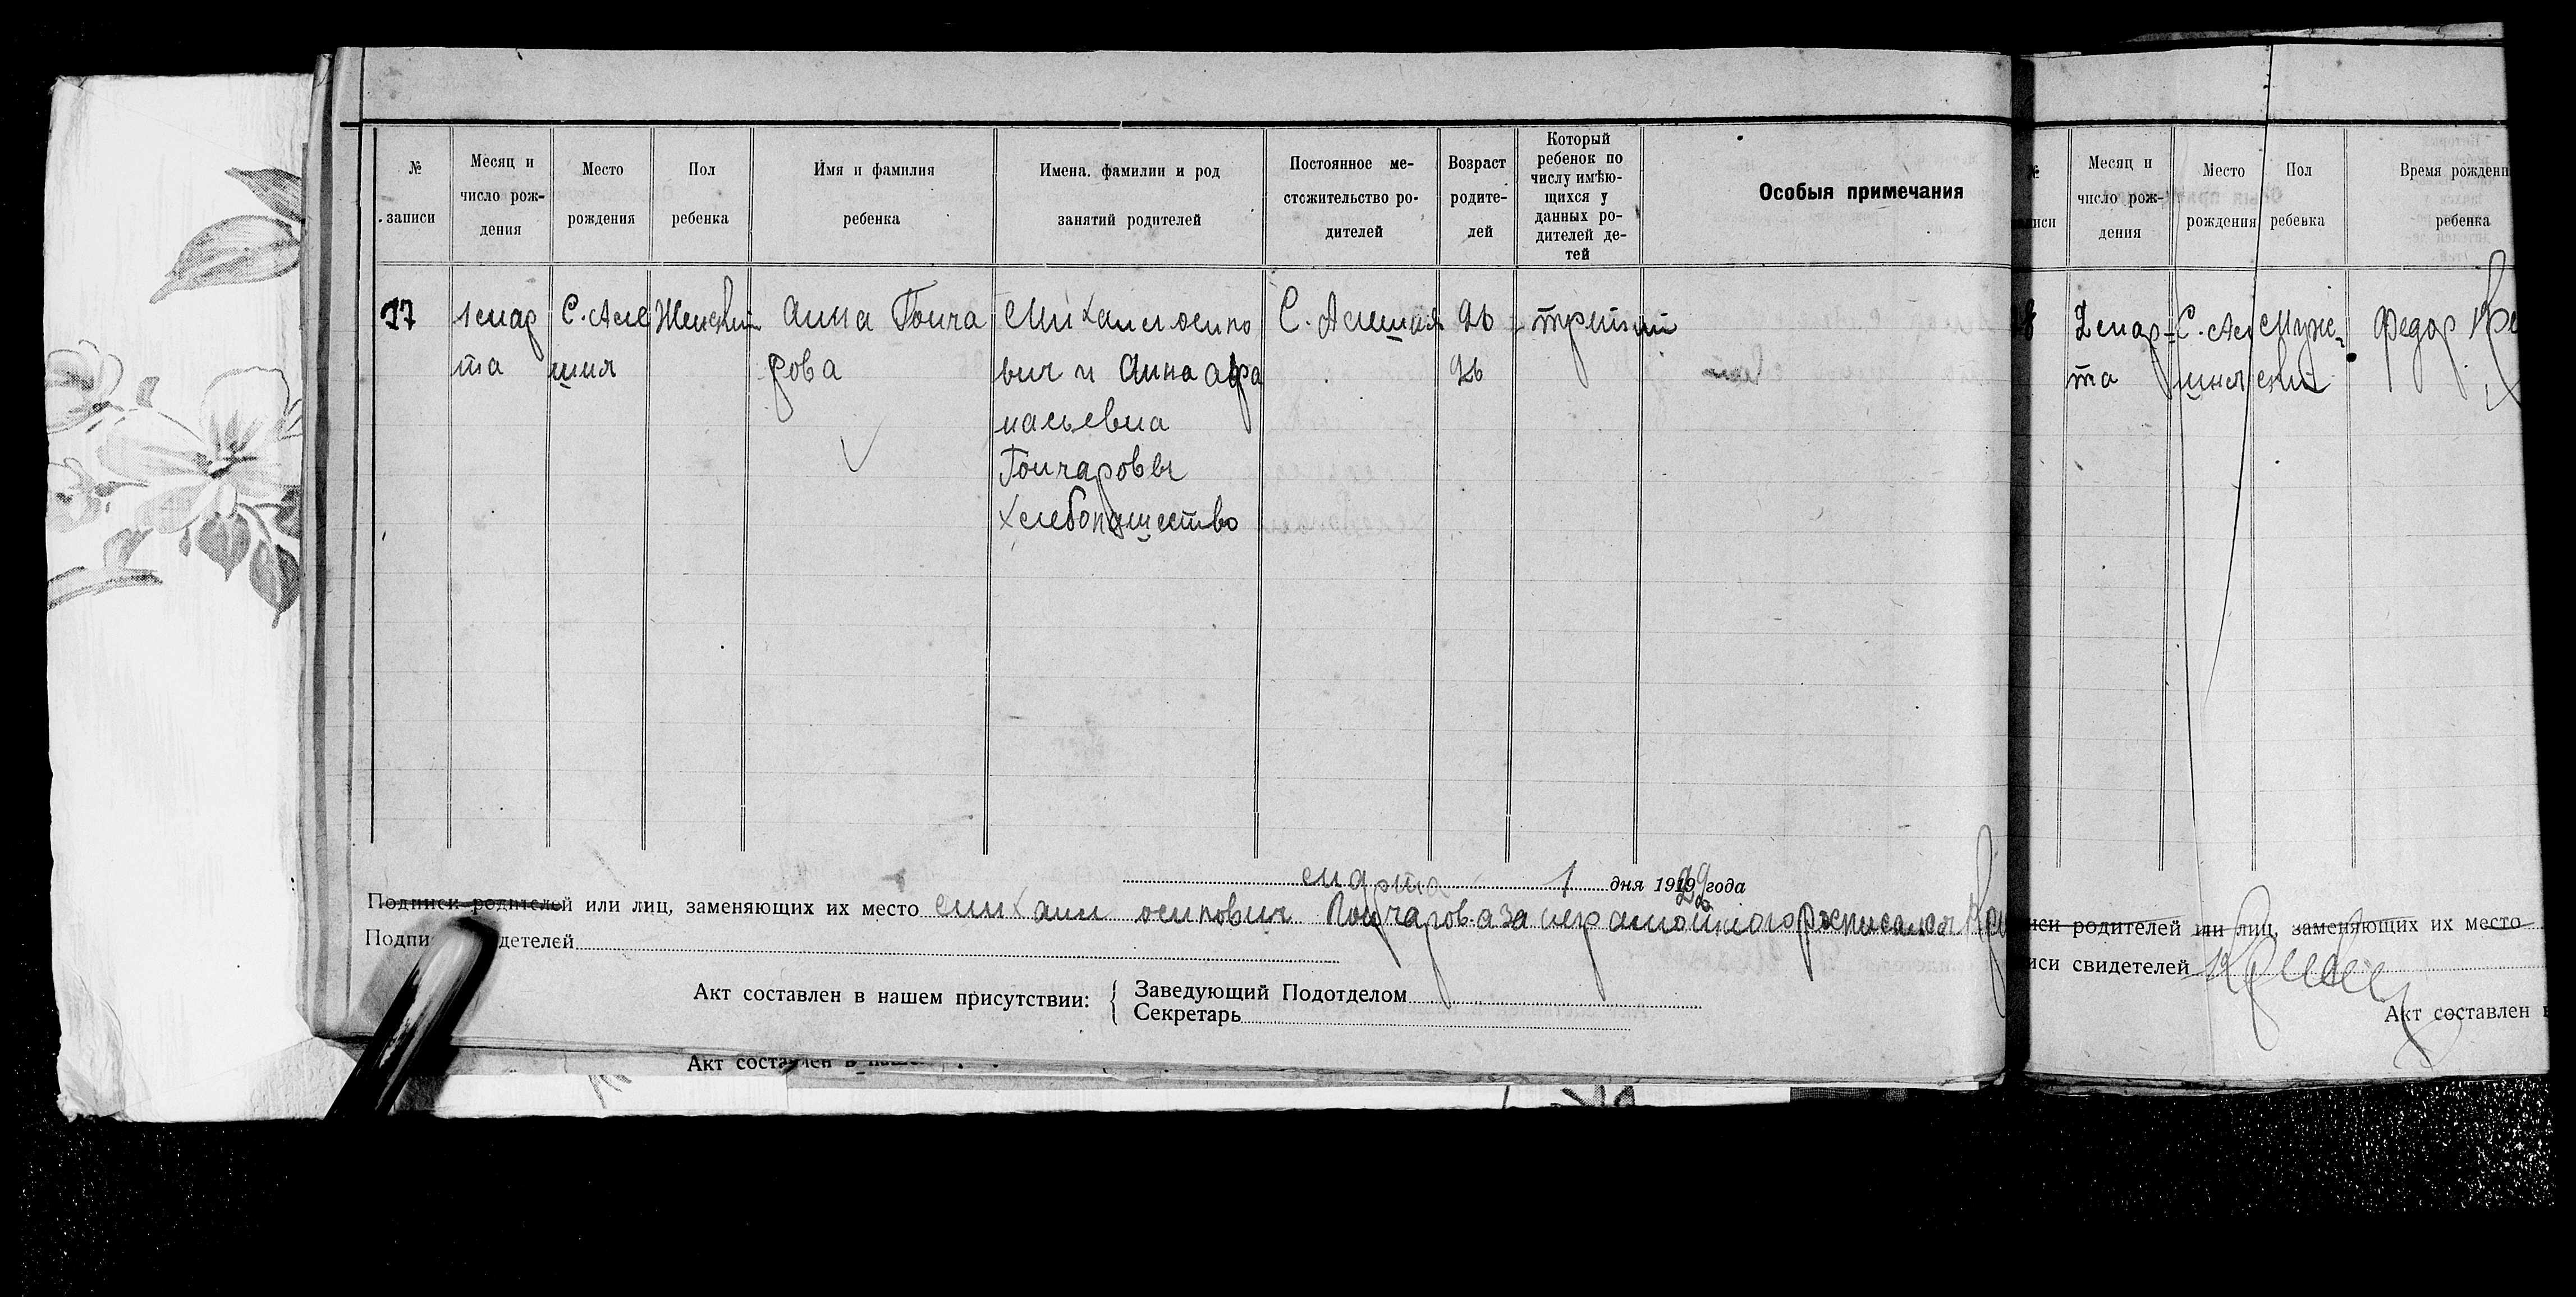 № записи
Месяц и число рож-дения
Место рождения
Пол ребенка
Имя и фамилия ребенка
Имена. фамилии и род занятий родителей
Постоянное ме-стожительство ро-дителей
Возраст родите-лей
Который ребенок по числу имѣю-щихся у данных ро-дителей де-тей
Особыя примечания
17
1 мар
та
Женский
Анна Гонча
рова
Михаил осипо
вич и Анна афа
насьевна
Гончаровы
хлебопашество
26
26
третий
марта 1 дня 1929 года
Подписи родителей или лиц, заменяющих их место михаил осипович Гончарова за неграмотного росписался
Акт составлен в нашем присутствии:
Заведующий Подотделом
Секретарь
Акт составлен в
Месяц и число рож-дения
Место рождения
Пол ребенка
Время рождени
ребенка
8
2 мар-
та
Муже-
ский
Федор
родителей или лиц, заменяющих их место
свидетелей
Акт составлен